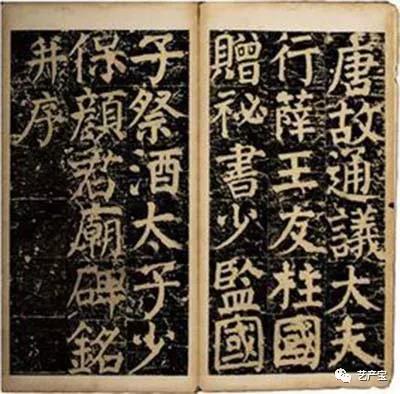 唐故通議大夫
行薛王友柱國
贈祕書少監國
子祭酒太子少
保顔君廟碑銘
并序
艺产宝